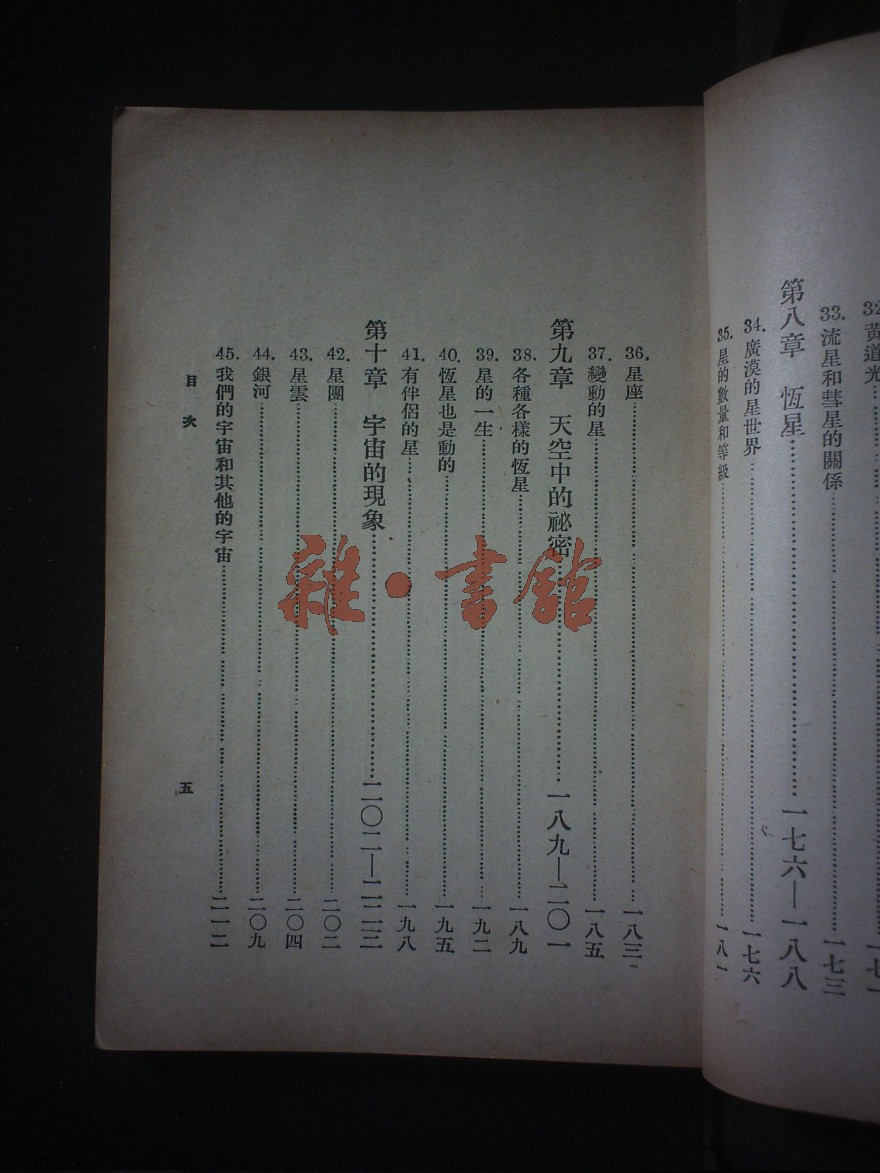 32. 黃道光……一七一
33. 流星和彗星的關係……一七三
第八章 恆星……一七六—一八八
34. 廣漠的星世界……一七六
35. 星的數量和等級……一八一
36. 星座……一八三
37. 變動的星……一八五
第九章 天空中的祕密……一八九—二〇一
38. 各種各樣的恆星……一八九
39. 星的一生……一九二
40. 恆星也是動的……一九五
41. 有伴侶的星……一九八
第十章 宇宙的現象……二〇二—二二三
42. 星團……二〇二
43. 星雲……二〇四
44. 銀河……二〇九
45. 我們的宇宙和其他的宇宙……二一二
目次
五
雜·書館